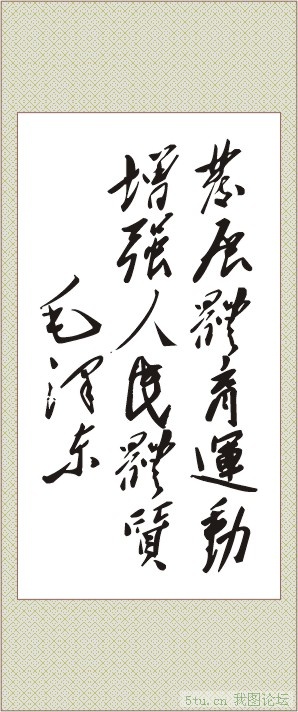 發展體育運動
增强人民體質
毛泽东
5tu.cn 我图论坛